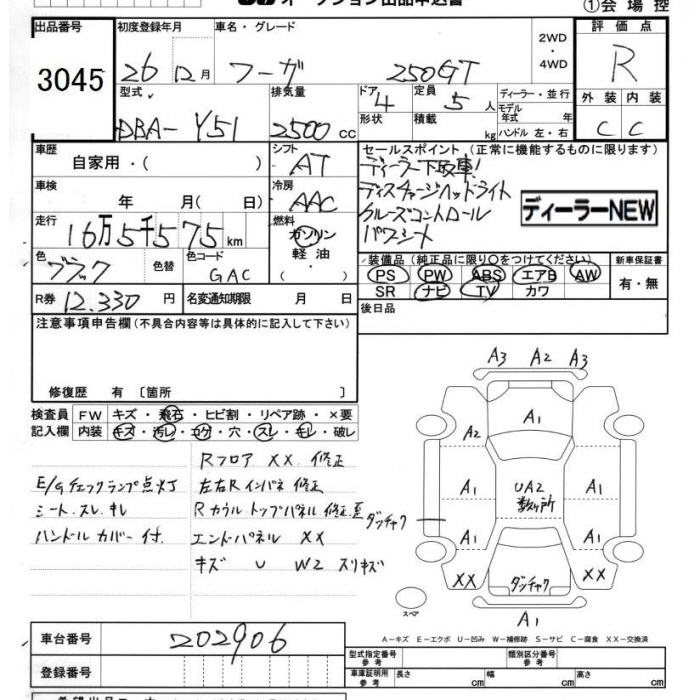 オークション出品申込書
①会場控
出品番号 初度登録年月 車名・グレード 2WD・4WD 評価点
3045 26 12月 フーガ 250GT R
型式 排気量 ドア 4 定員 5人 ディーラー・並行 外装 内装
DBA- Y51 2500cc 形状 積載 kg モデル年式 年 ハンドル 左・右 C C
車歴 シフト セールスポイント(正常に機能するものに限ります)
自家用・( ) AT ディーラー下取車!
車検 冷房 ディスチャージヘッドライト
年 月( 日) AAC クルーズコントロール ディーラーNEW
走行 燃料 パワーシート
16万5千575km ガソリン 軽油・( )
色 色替 色コード 装備品(純正品に限り○をつけてください) 新車保証書
ブラック GAC PS PW ABS エアB AW 有・無
SR ナビ TV カワ
R券 12,330円 名変通知期限 月 日 後日品
注意事項申告欄(不具合内容等は具体的に記入して下さい)
修復歴 有〔箇所 〕
A3 A2 A3
検査員 FW キズ・飛石・ヒビ割・リペア跡・×要
記入欄 内装 キズ・汚レ・コゲ・穴・スレ・キレ・破レ
A1
A2
Rフロア XX 修正
E/Gチェックランプ点灯 左右Rインパネ 修正
A1 UA2 数ヶ所 A1
シート.スレ.キレ Rカウルトップパネル 修正歪 ダンチャク
ハンドル カバー 付. エンドパネル XX
A1 A1
キズ U W2 スリキズ
XX ダンチャク XX
スペア
A1
A－キズ E－エクボ U－凹み W－補修跡 S－サビ C－腐食 XX－交換済
車台番号 202906
型式指定番号 参考 類別区分番号 参考
登録番号 車庫証明用 参考 長さ cm 幅 cm 高さ cm